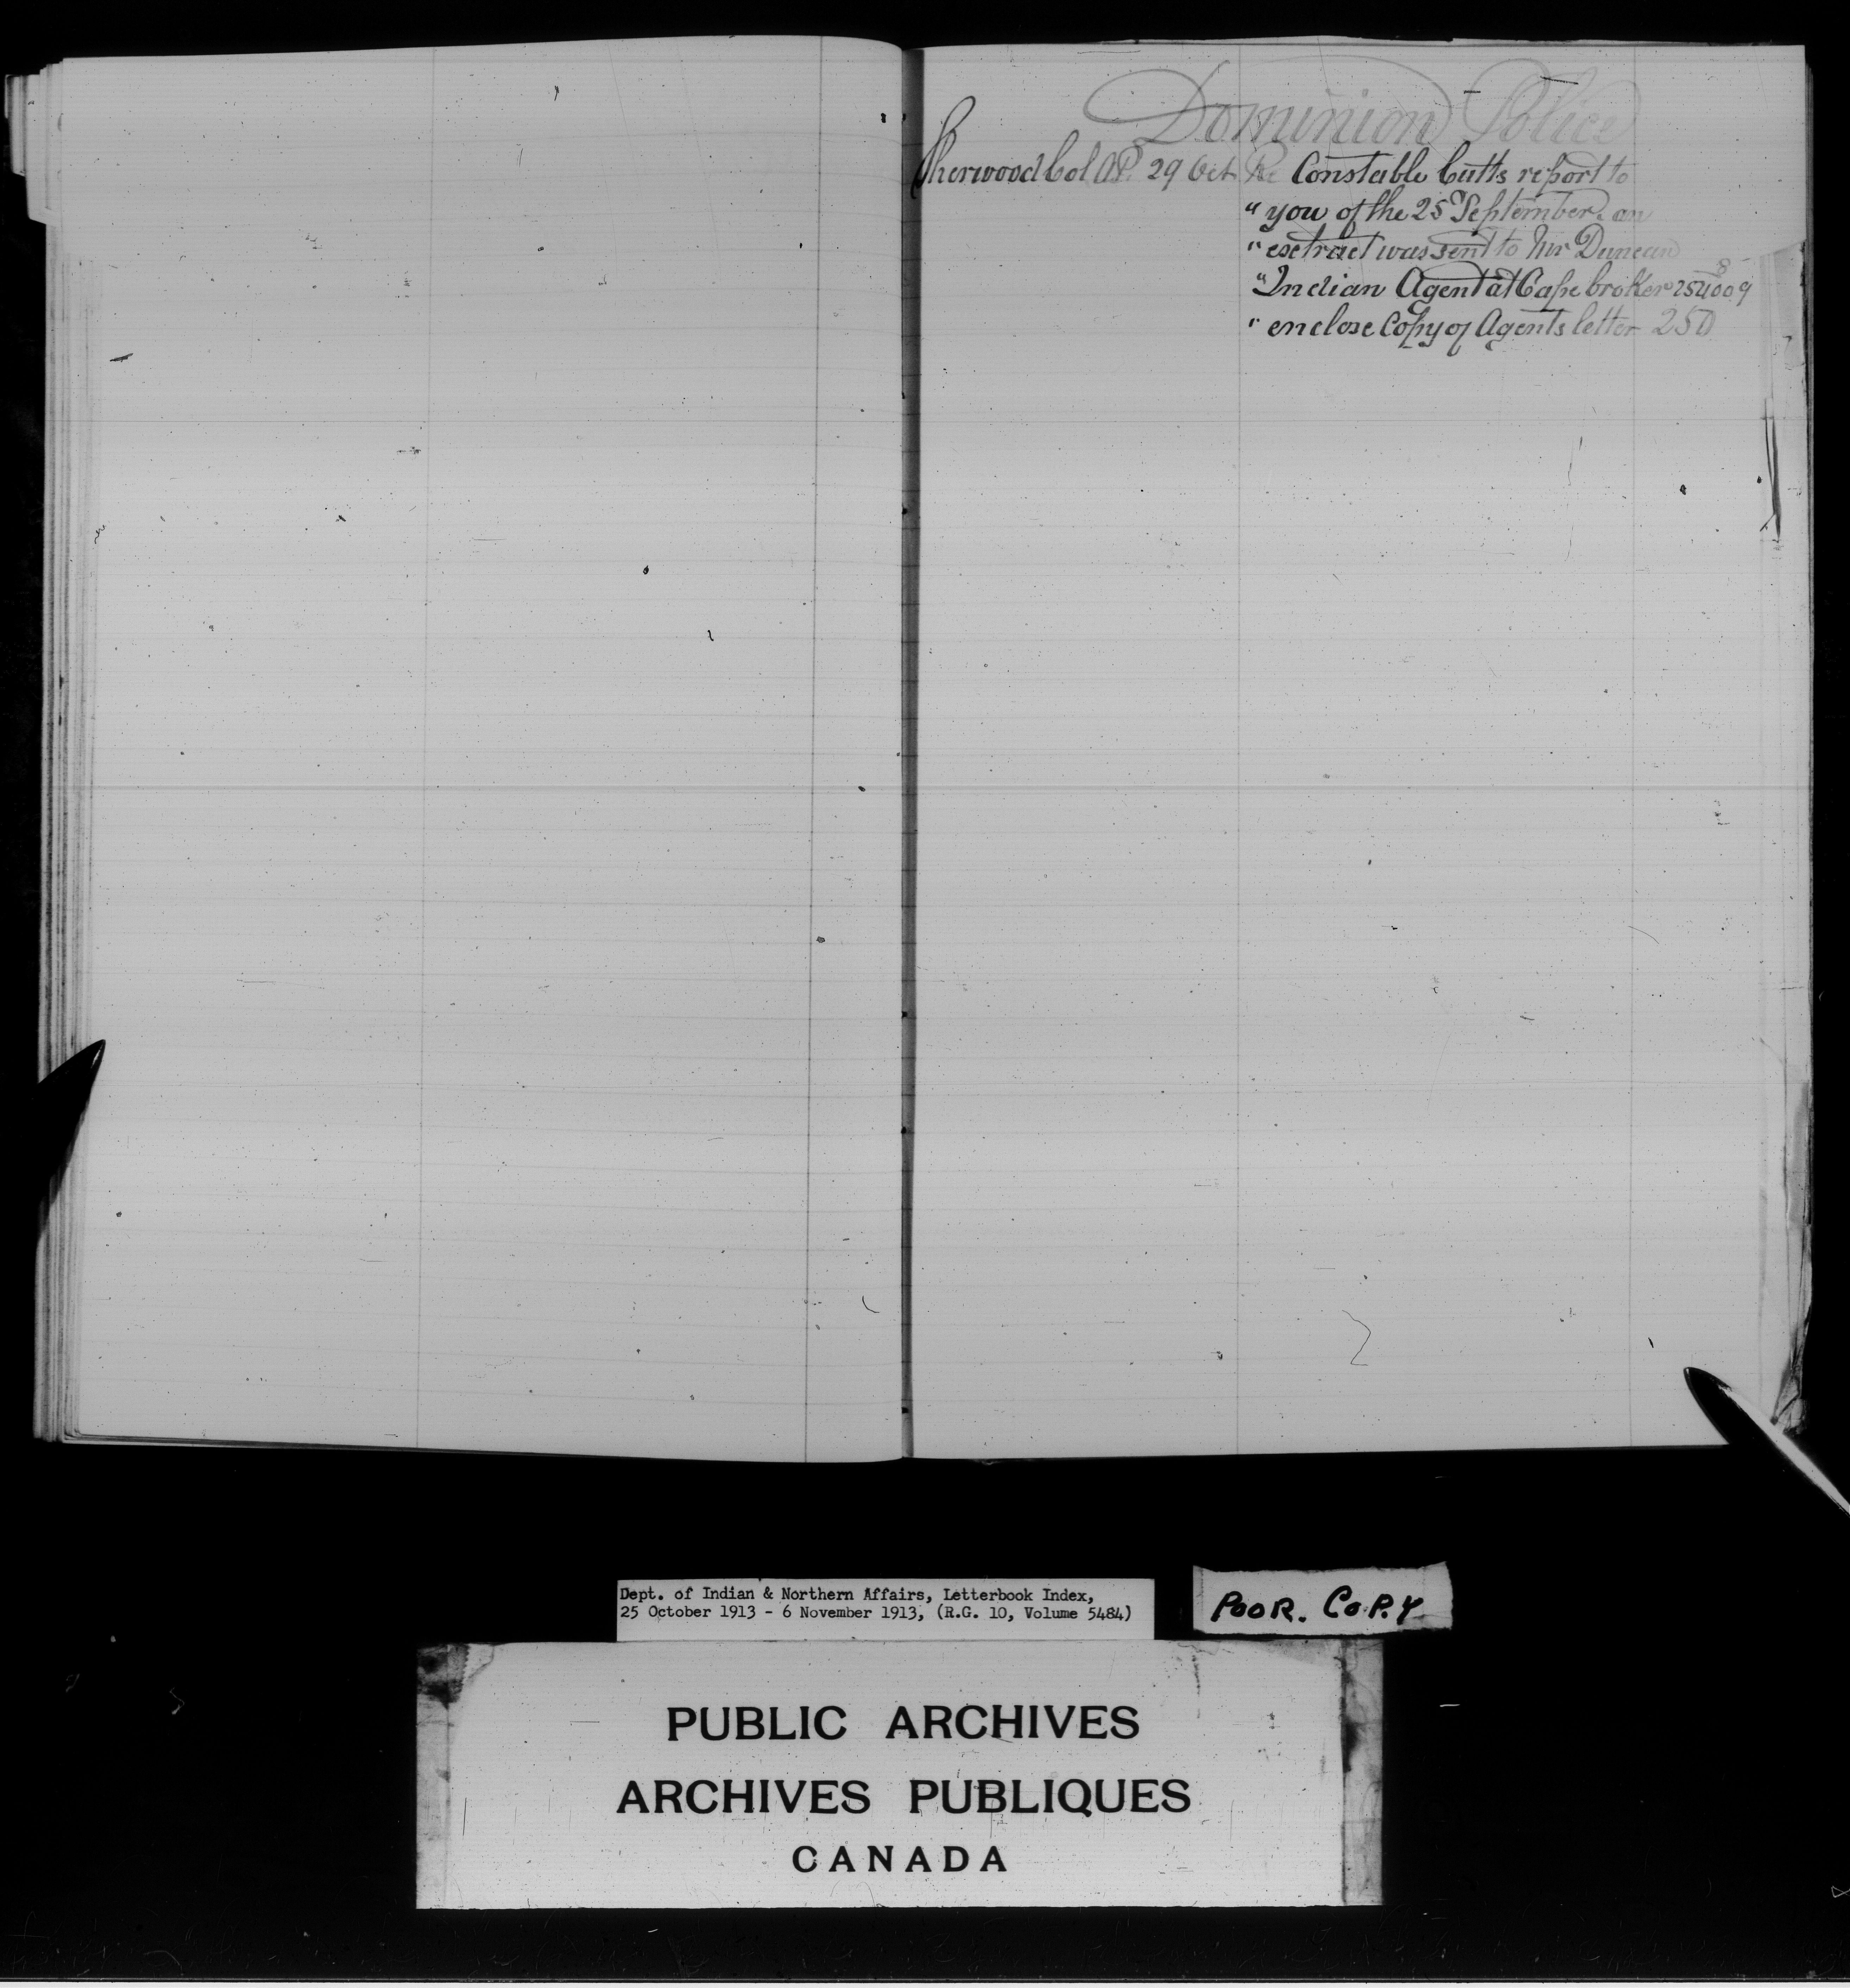 Dominion Police
Sherwood Col A.P. 29 Oct Re Constable Cutts report to
" you of the 25 September. an
" esctract was sent to Mr Duncan
" Indian Agent at Cape broker 254009
8
" enclose Copy of Agents letter 250
Dept. of Indian & Northern Affairs, Letterbook Index,
25 October 1913 - 6 November 1913, (R.G. 10, Volume 5484)
POOR. COPY
PUBLIC ARCHIVES
ARCHIVES PUBLIQUES
CANADA